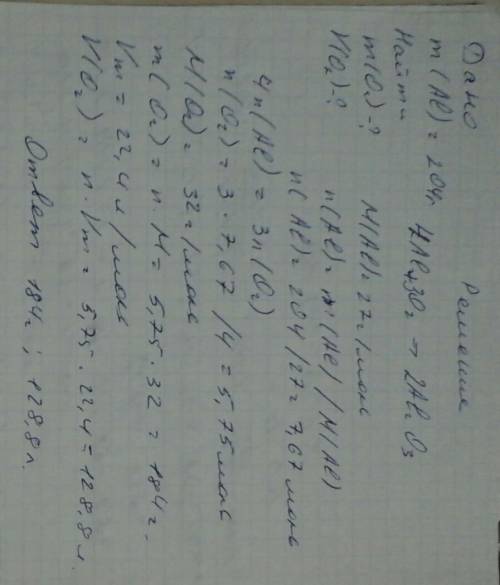 Дано Решение
m(Al)=204г. 4Al+3O₂→2Al₂O₃
Найти
m(O₂)-? M(Al)=27г/моль
V(O₂)-? n(Al)=m(Al)/M(Al)
n(Al)=204/27=7,67моль
4n(Al)=3n(O₂)
n(O₂)=3·7,67/4=5,75моль
M(O₂)=32г/моль
m(O₂)=n·M=5,75·32=184г.
Vm=22,4л/моль
V(O₂)=n·Vm=5,75·22,4=128,8л.
Ответ 184г; 128,8л.